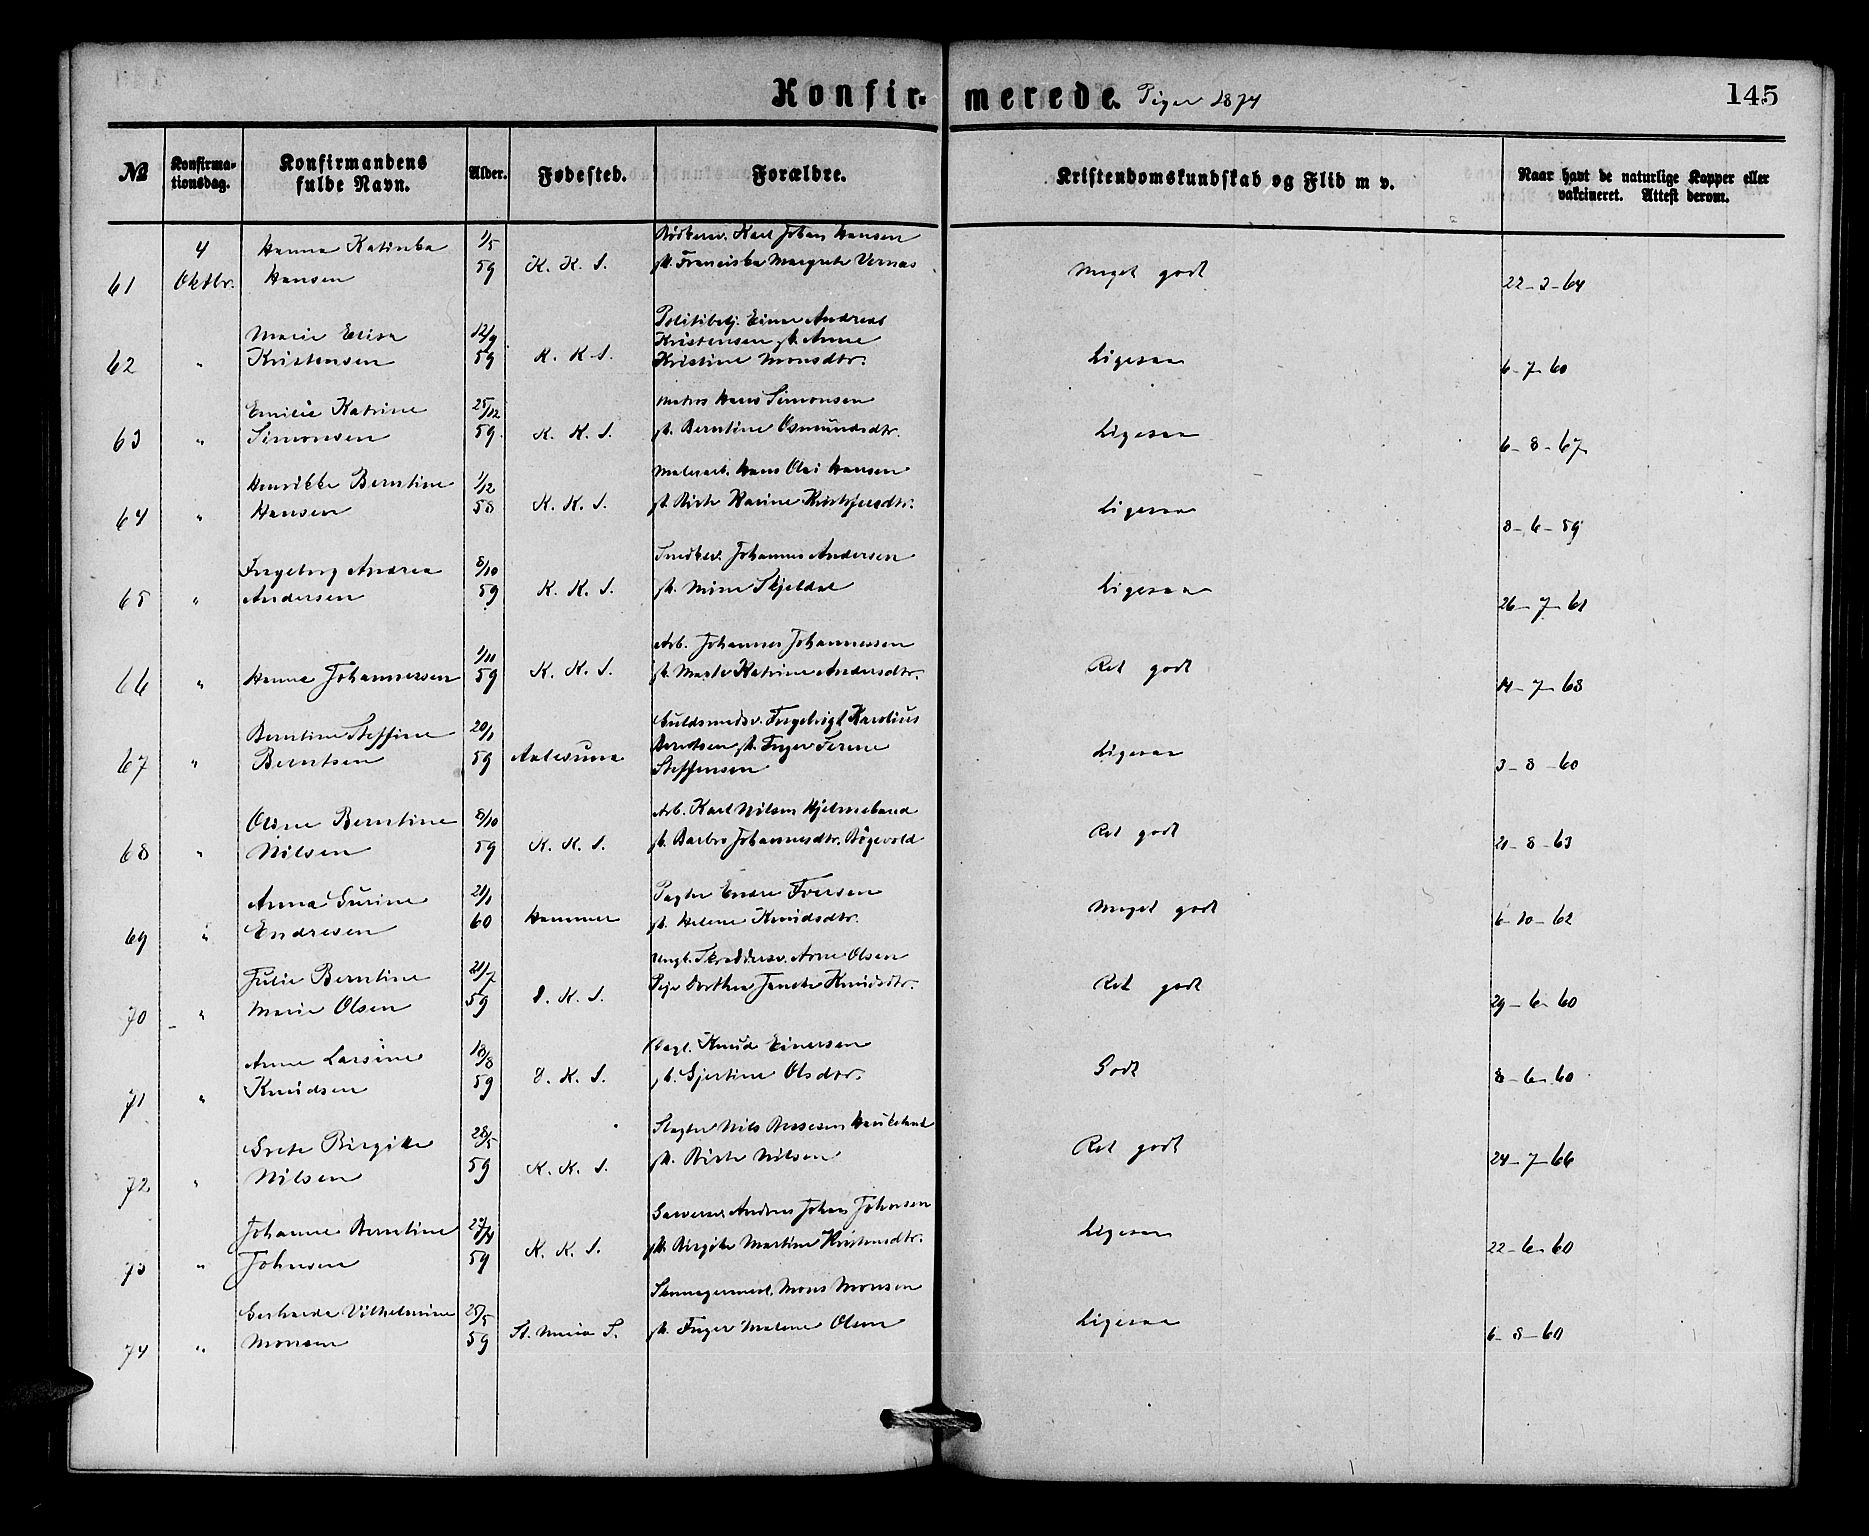 Konfirmerede. Piger 1874
145
№ Konfirmationsdag. Konfirmandens fulde Navn. Alder. Fødested. Forældre. Kristendomskundskab og Flid m v. Naar havt de naturlige Kopper eller vakcineret. Attest derom.
4 Hanna Katinka 1/5 Bødkersv. Karl Johan Hansen
61 Oktbr. Hansen 59 K. K. S. Franciska Margrete Meget godt 22-3-64
Marie Elisa 12/9 Politibetj. Einar Andreas
Kristensen Anne
62 " Kristensen 59 K. K. S. Kristine Monsdtr. Ligesaa 6-7-60
Emilie Katrine 25/12 Matros Hans Simonsen
63 " Simonsen 59 K. K. S. Berntine Osmundsdtr. Ligesaa 6-8-67
Henrikke Berntine 1/12 Hans Olai Hansen
64 " Hansen 58 K. K. S. Birte Karine Ligesaa 8-6-59
Ingeborg Andrea 8/10 Snedkersv. Johannes Andersen
65 " Andersen 59 K. K. S. Skjeldal Ligesaa 26-7-61
1/11 Arb. Johannes Johannessen
66 " Hanna Johannessen 59 K. K. S. Marte Katrine Andersdtr. Ret godt 14-7-68
Berntine Steffine 20/1 Guldsmedsv. Ingebrigt Karolius
Berntsen Inger Serene
67 " Berntsen 59 Aalesund Steffensen Ligesaa 3-8-60
Oline Berntine 8/10 Arb. Karl Nilsen
68 " Nilsen 59 K. K. S. Barbro Johannesdtr. Bøgevold Ret godt 21-8-63
Anna Gurine 21/1 Pagter Endre Iversen
69 " Endresen 60 Hammer Helene Knudsdtr. Meget godt 6-10-62
Julie Berntine 21/7 Ungk. Skräddersv. Arne Olsen
70 " Marie Olsen 59 D. K. S. Pige Dorthea Knudsdtr. Ret godt 29-6-60
Anne Larsine 13/8 Knud Einersen
71 " Knudsen 59 D. K. S. Gjertine Olsdtr. Godt 8-6-60
Grete Birgitte 28/5 Slagter Nils
72. " Nilsen 59 K. K. S. Birte Nilsen Ret godt 24-7-66
Johanne Berntine 27/4 Garversv. Andreas Johan Johnsen
73 " Johnsen 59 K. K. S. Birgitte Martine Kristensdtr. Ligesaa 22-6-60
Gerharda Vilhelmine 25/5 Skomagermest. Mons Monsen
74 " Monsen 59 St. Maria S. Inger Malene Olsen Ligesaa 6-8-60